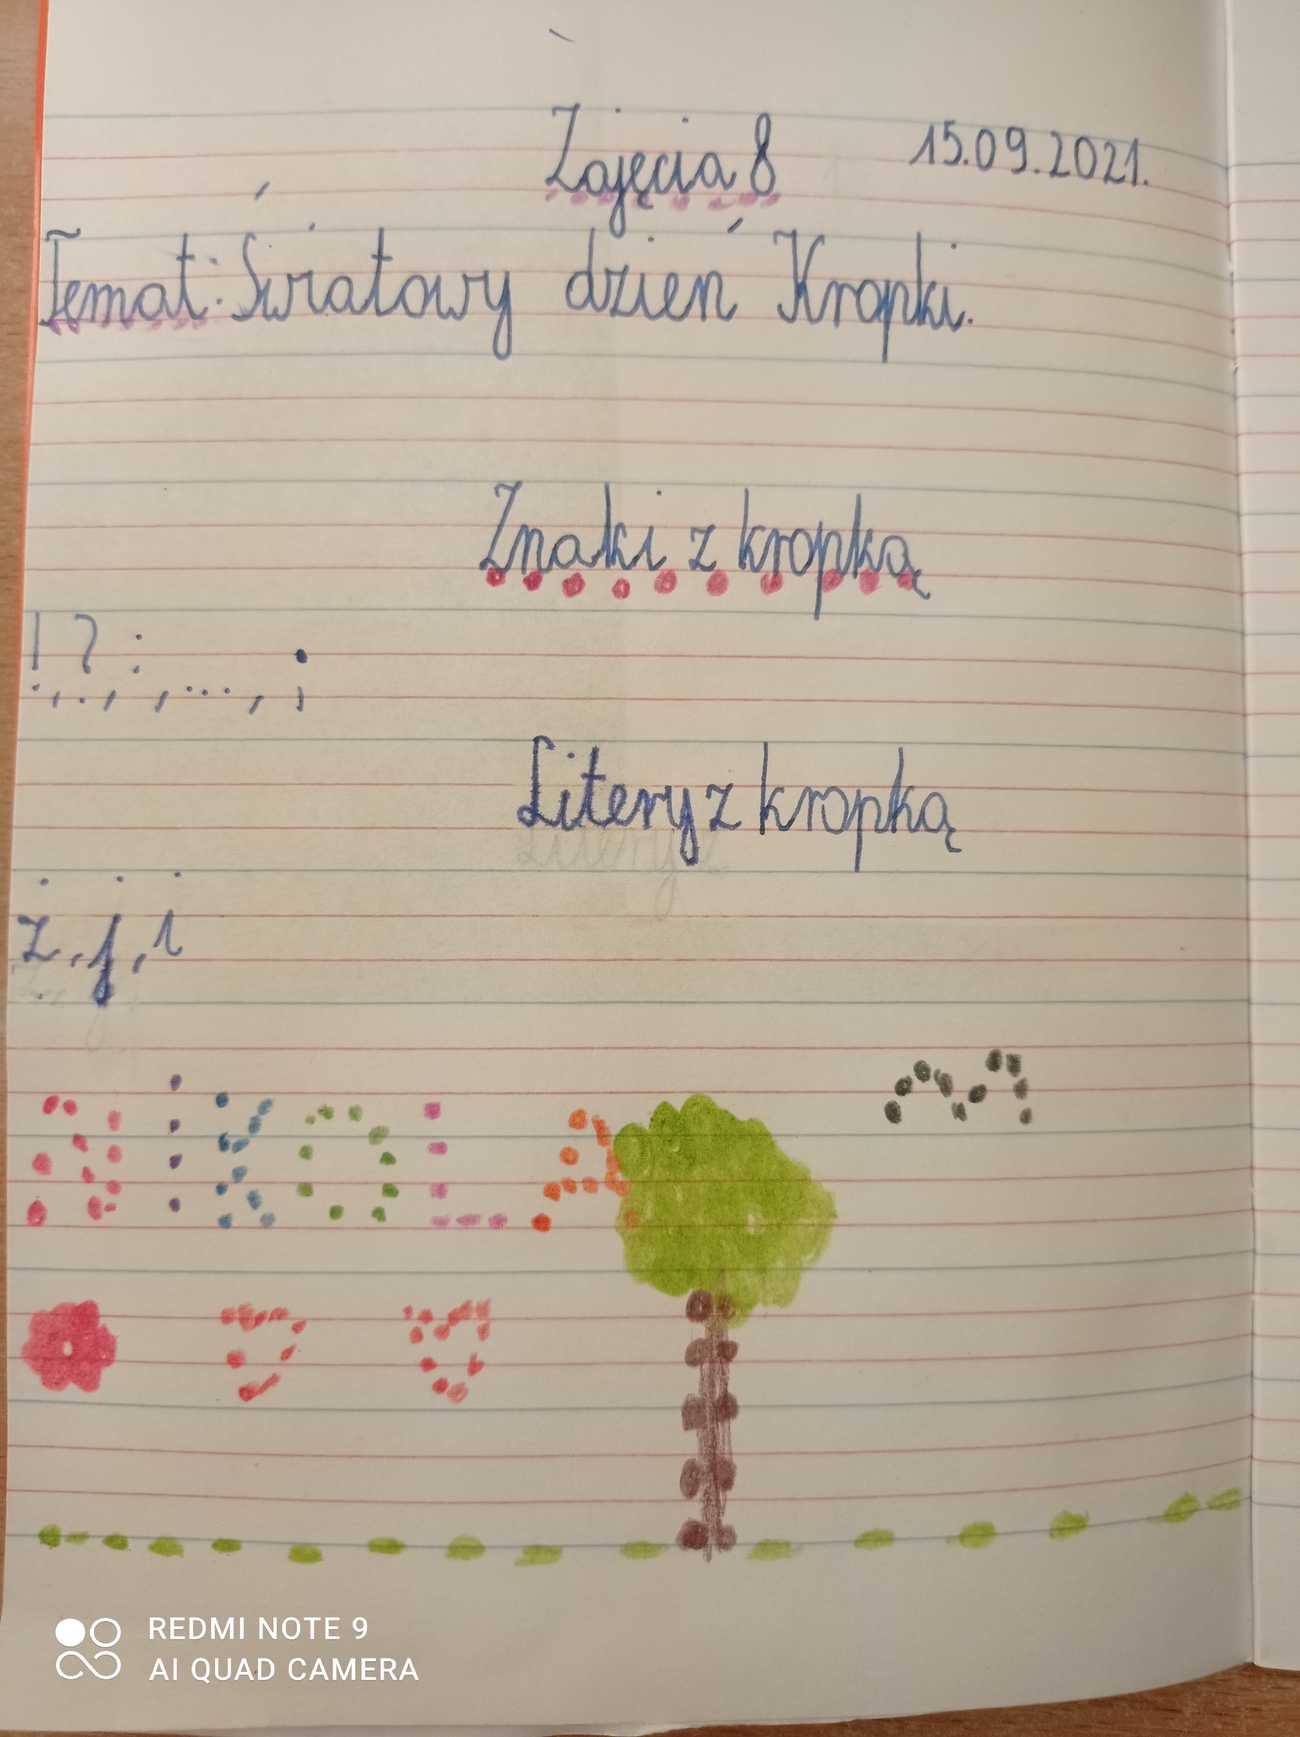 Zajęcia 8 15.09.2021.
Temat: Światowy dzień Kropki.
Znaki z kropką
! , ? , : , ... , ;
Litery z kropką
ż, j, i
NiKOLA
REDMI NOTE 9
AI QUAD CAMERA